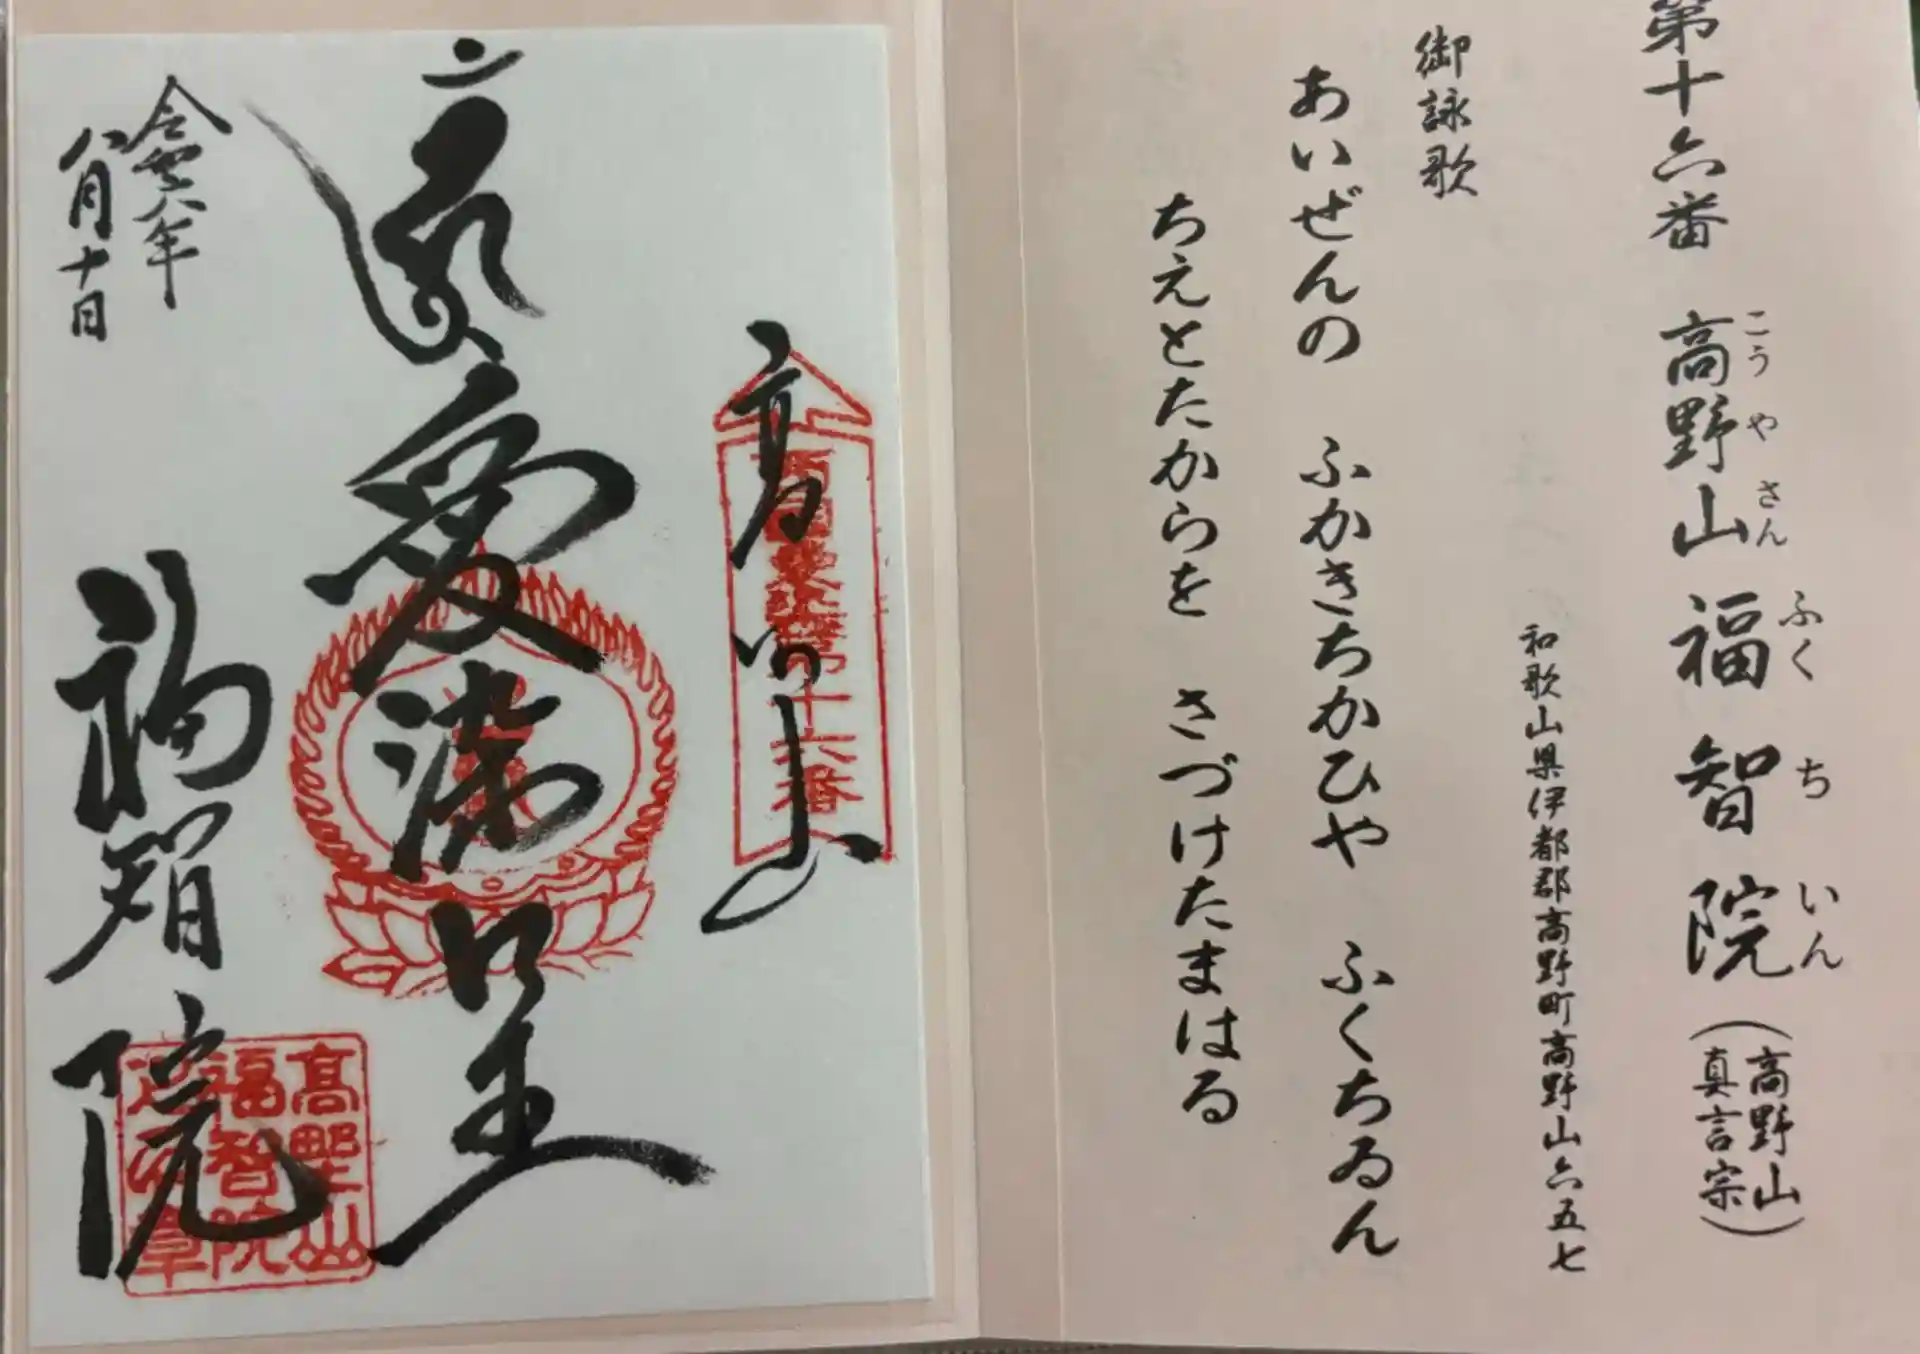 第十六番 高野山福智院(高野山真言宗)
こうやさん ふくちいん
和歌山県伊都郡高野町高野山六五七
御詠歌
あいぜんの ふかきちかひや ふくちゐん
ちえとたからを さづけたまはる
高野山
西国愛染第十六番
愛染明王
令和六年
八月十日
福智院
高野山
福智院